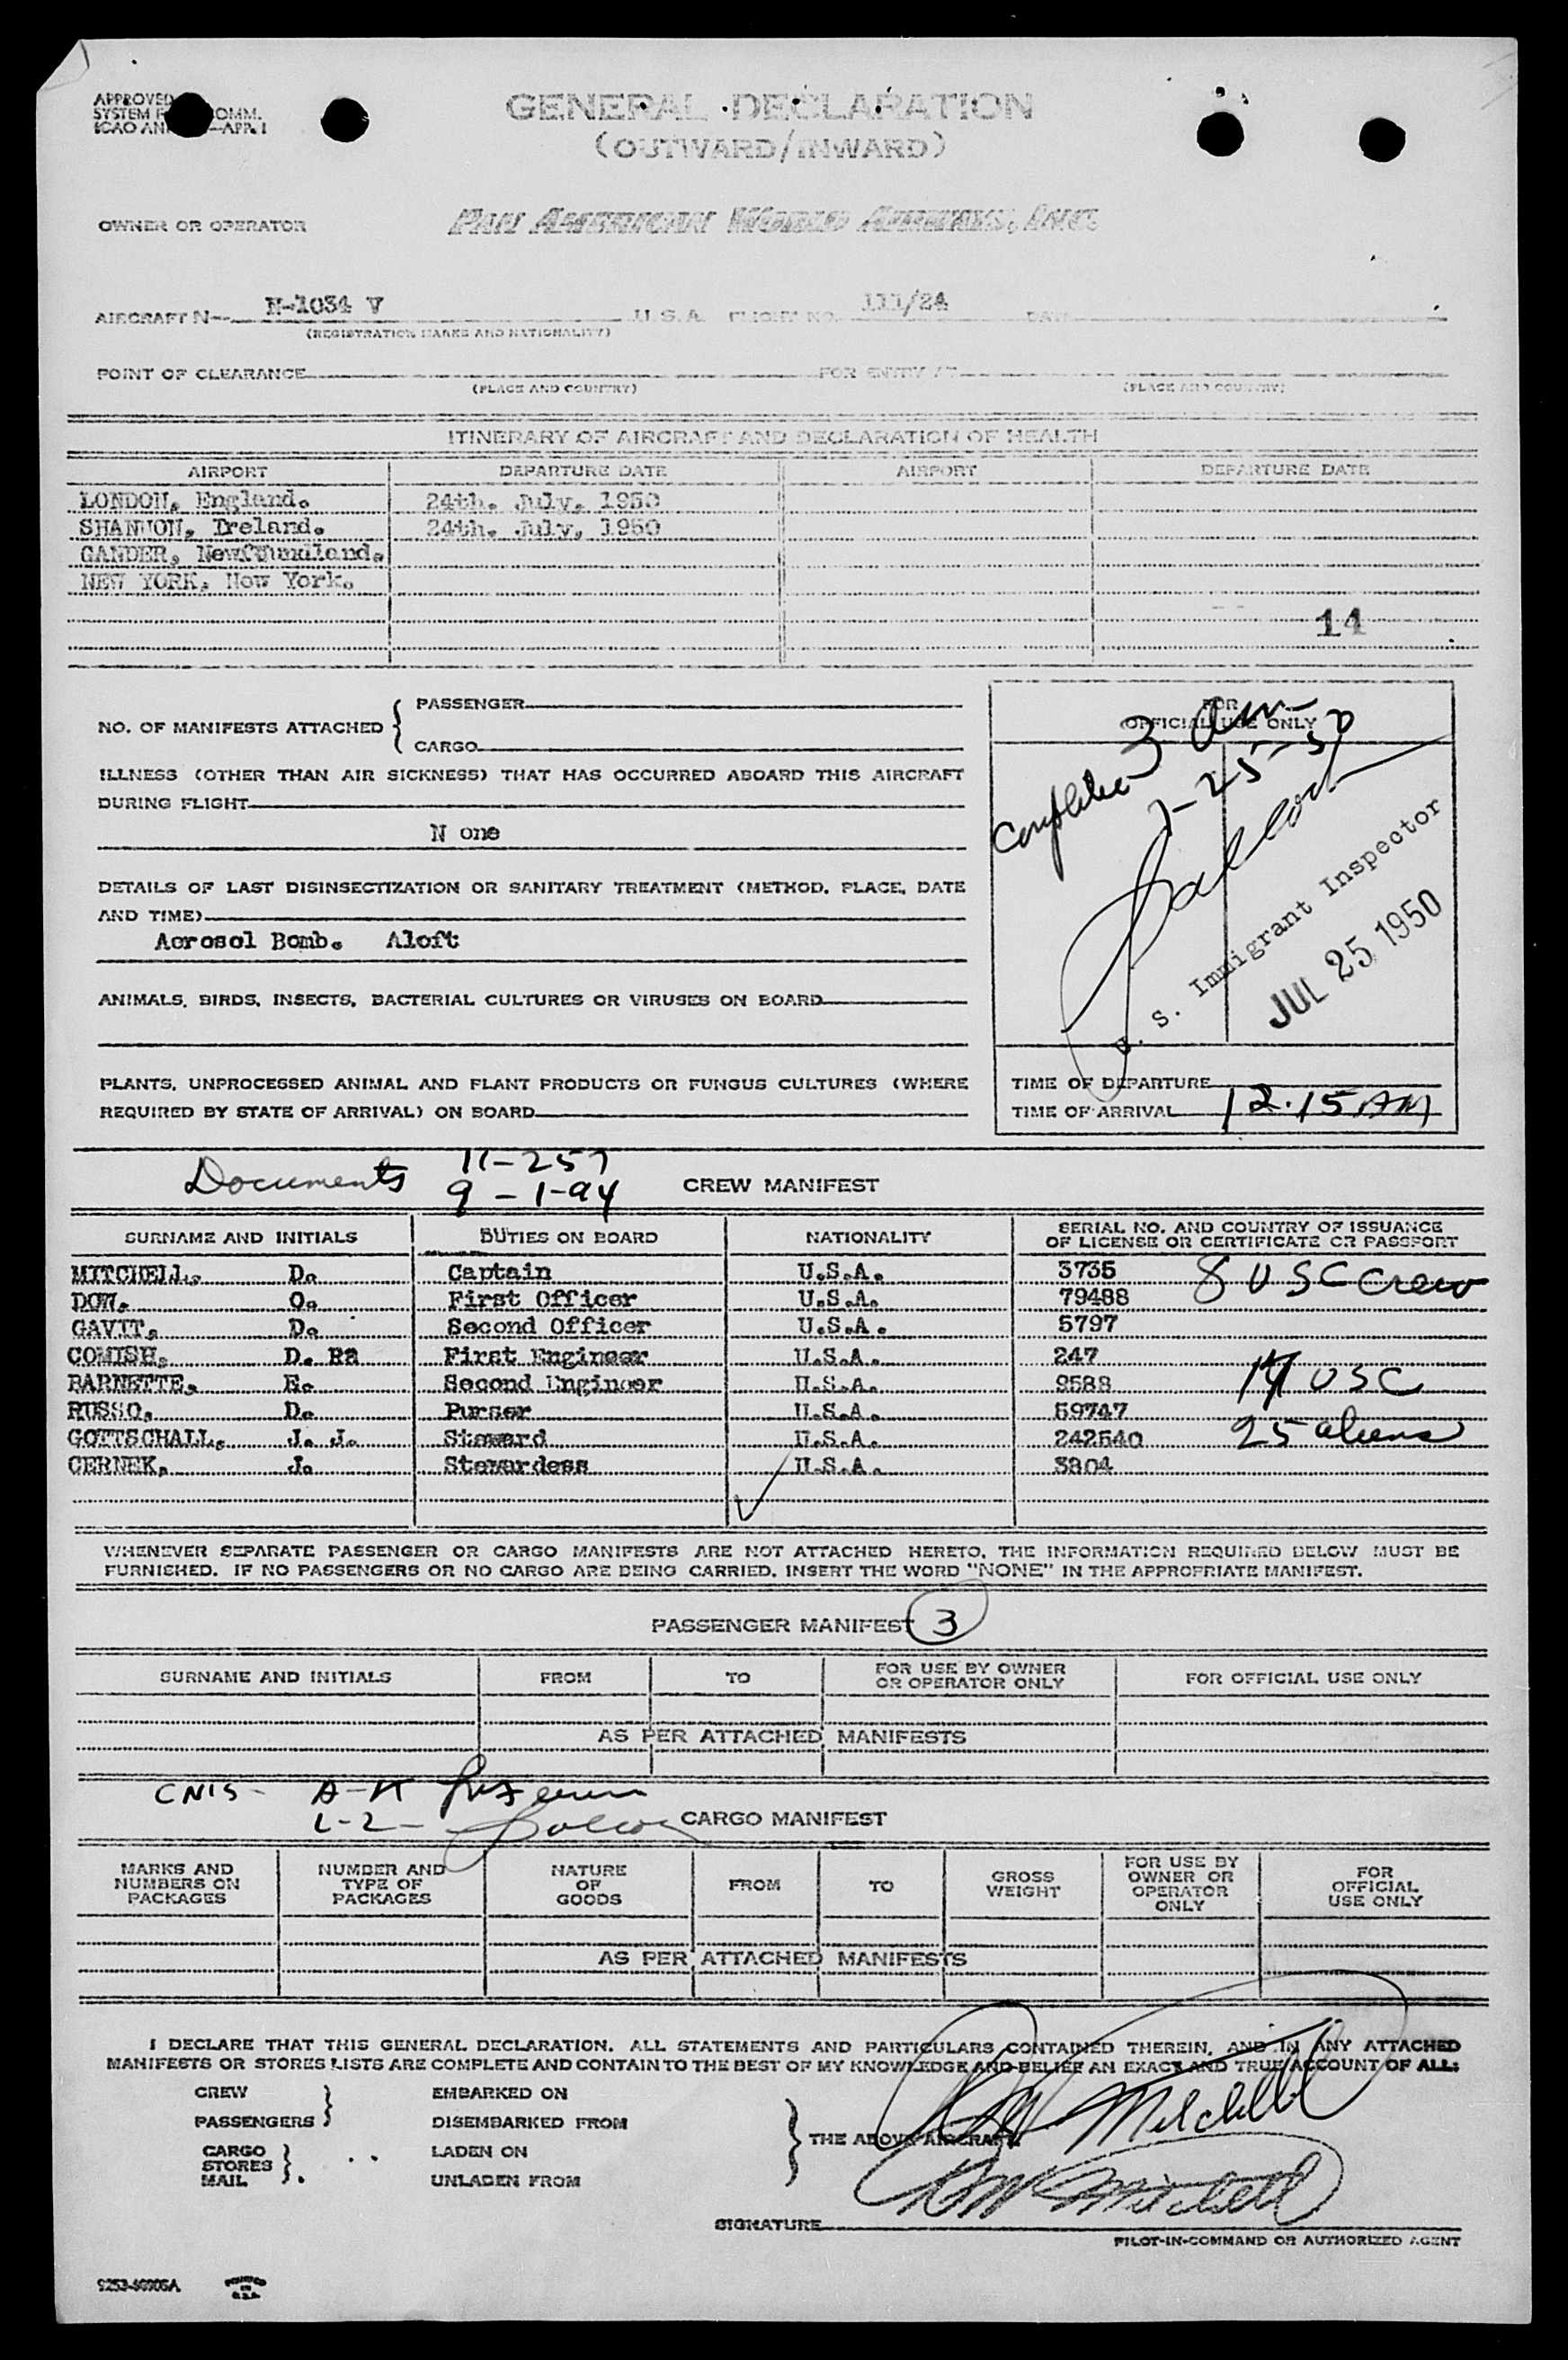 APPROVED
SYSTEM F OMM.
ICAO AN —APR. 1
GENERAL DECLARATION
(OUTWARD/INWARD)
OWNER OR OPERATOR PAN AMERICAN WORLD AIRWAYS, INC.
AIRCRAFT N— N-1034 V U.S.A. FLIGHT NO. 111/24 DATE
(REGISTRATION MARKS AND NATIONALITY)
POINT OF CLEARANCE FOR ENTRY AT
(PLACE AND COUNTRY) (PLACE AND COUNTRY)
ITINERARY OF AIRCRAFT AND DECLARATION OF HEALTH
AIRPORT DEPARTURE DATE AIRPORT DEPARTURE DATE
LONDON, England. 24th. July, 1950
SHANNON, Ireland. 24th. July, 1950
GANDER, Newfoundland.
NEW YORK, New York.
14
NO. OF MANIFESTS ATTACHED { PASSENGER
CARGO
ILLNESS (OTHER THAN AIR SICKNESS) THAT HAS OCCURRED ABOARD THIS AIRCRAFT
DURING FLIGHT
N one
DETAILS OF LAST DISINSECTIZATION OR SANITARY TREATMENT (METHOD, PLACE, DATE
AND TIME)
Aerosol Bomb. Aloft
ANIMALS, BIRDS, INSECTS, BACTERIAL CULTURES OR VIRUSES ON BOARD
PLANTS, UNPROCESSED ANIMAL AND PLANT PRODUCTS OR FUNGUS CULTURES (WHERE
REQUIRED BY STATE OF ARRIVAL) ON BOARD
FOR
OFFICIAL USE ONLY
3 am
7-25-50
U. S. Immigrant Inspector
JUL 25 1950
TIME OF DEPARTURE
TIME OF ARRIVAL 12.15 AM
Documents 11-257
9-1-94
CREW MANIFEST
SURNAME AND INITIALS DUTIES ON BOARD NATIONALITY SERIAL NO. AND COUNTRY OF ISSUANCE
OF LICENSE OR CERTIFICATE OR PASSPORT
MITCHELL, D. Captain U.S.A. 3735 8 USC Crew
DOW, O. First Officer U.S.A. 79488
GAVIT, D. Second Officer U.S.A. 5797
COMISH, D. Ra First Engineer U.S.A. 247
BARNETTE, E. Second Engineer U.S.A. 9588 USC
RUSSO, D. Purser U.S.A. 59747
GOTTSCHALL, J. J. Steward U.S.A. 242540 25 aliens
CERNEK, J. Stewardess U.S.A. 3804
WHENEVER SEPARATE PASSENGER OR CARGO MANIFESTS ARE NOT ATTACHED HERETO, THE INFORMATION REQUIRED BELOW MUST BE
FURNISHED. IF NO PASSENGERS OR NO CARGO ARE BEING CARRIED, INSERT THE WORD "NONE" IN THE APPROPRIATE MANIFEST.
PASSENGER MANIFEST 3
SURNAME AND INITIALS FROM TO FOR USE BY OWNER
OR OPERATOR ONLY FOR OFFICIAL USE ONLY
AS PER ATTACHED MANIFESTS
CNIS- A-K
L-Z-
CARGO MANIFEST
MARKS AND
NUMBERS ON
PACKAGES
NUMBER AND
TYPE OF
PACKAGES
NATURE
OF
GOODS
FROM TO GROSS
WEIGHT
FOR USE BY
OWNER OR
OPERATOR
ONLY
FOR
OFFICIAL
USE ONLY
AS PER ATTACHED MANIFESTS
I DECLARE THAT THIS GENERAL DECLARATION, ALL STATEMENTS AND PARTICULARS CONTAINED THEREIN, AND IN ANY ATTACHED
MANIFESTS OR STORES LISTS ARE COMPLETE AND CONTAIN TO THE BEST OF MY KNOWLEDGE AND BELIEF AN EXACT AND TRUE ACCOUNT OF ALL:
CREW EMBARKED ON
PASSENGERS DISEMBARKED FROM
THE ABOVE AIRCRAFT.
CARGO LADEN ON
STORES
MAIL UNLADEN FROM
Mitchell
Mitchell
SIGNATURE
PILOT-IN-COMMAND OR AUTHORIZED AGENT
PRINTED
IN
U.S.A.